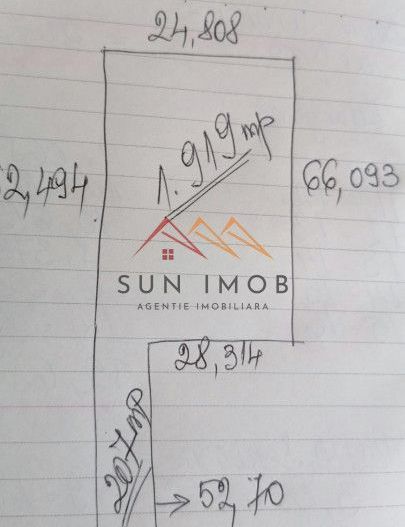 24,808
1.919 mp
2,494
66,093
SUN IMOB
AGENTIE IMOBILIARA
28,314
207 mp
52,70